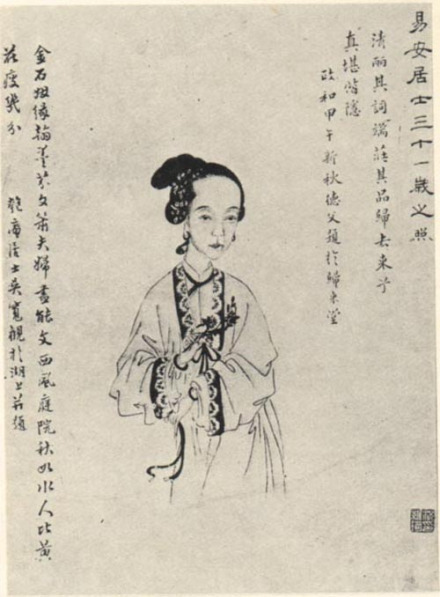 易安居士三十一歲之照
清丽其詞端莊其品歸去來兮
真堪偕隱
政和甲午新秋德父題於歸來堂
金石姻緣翰墨芬文簫夫婦盡能文西風庭院秋如水人比黃
花瘦幾分 匏庵居士吳寬觀於湖上莊題